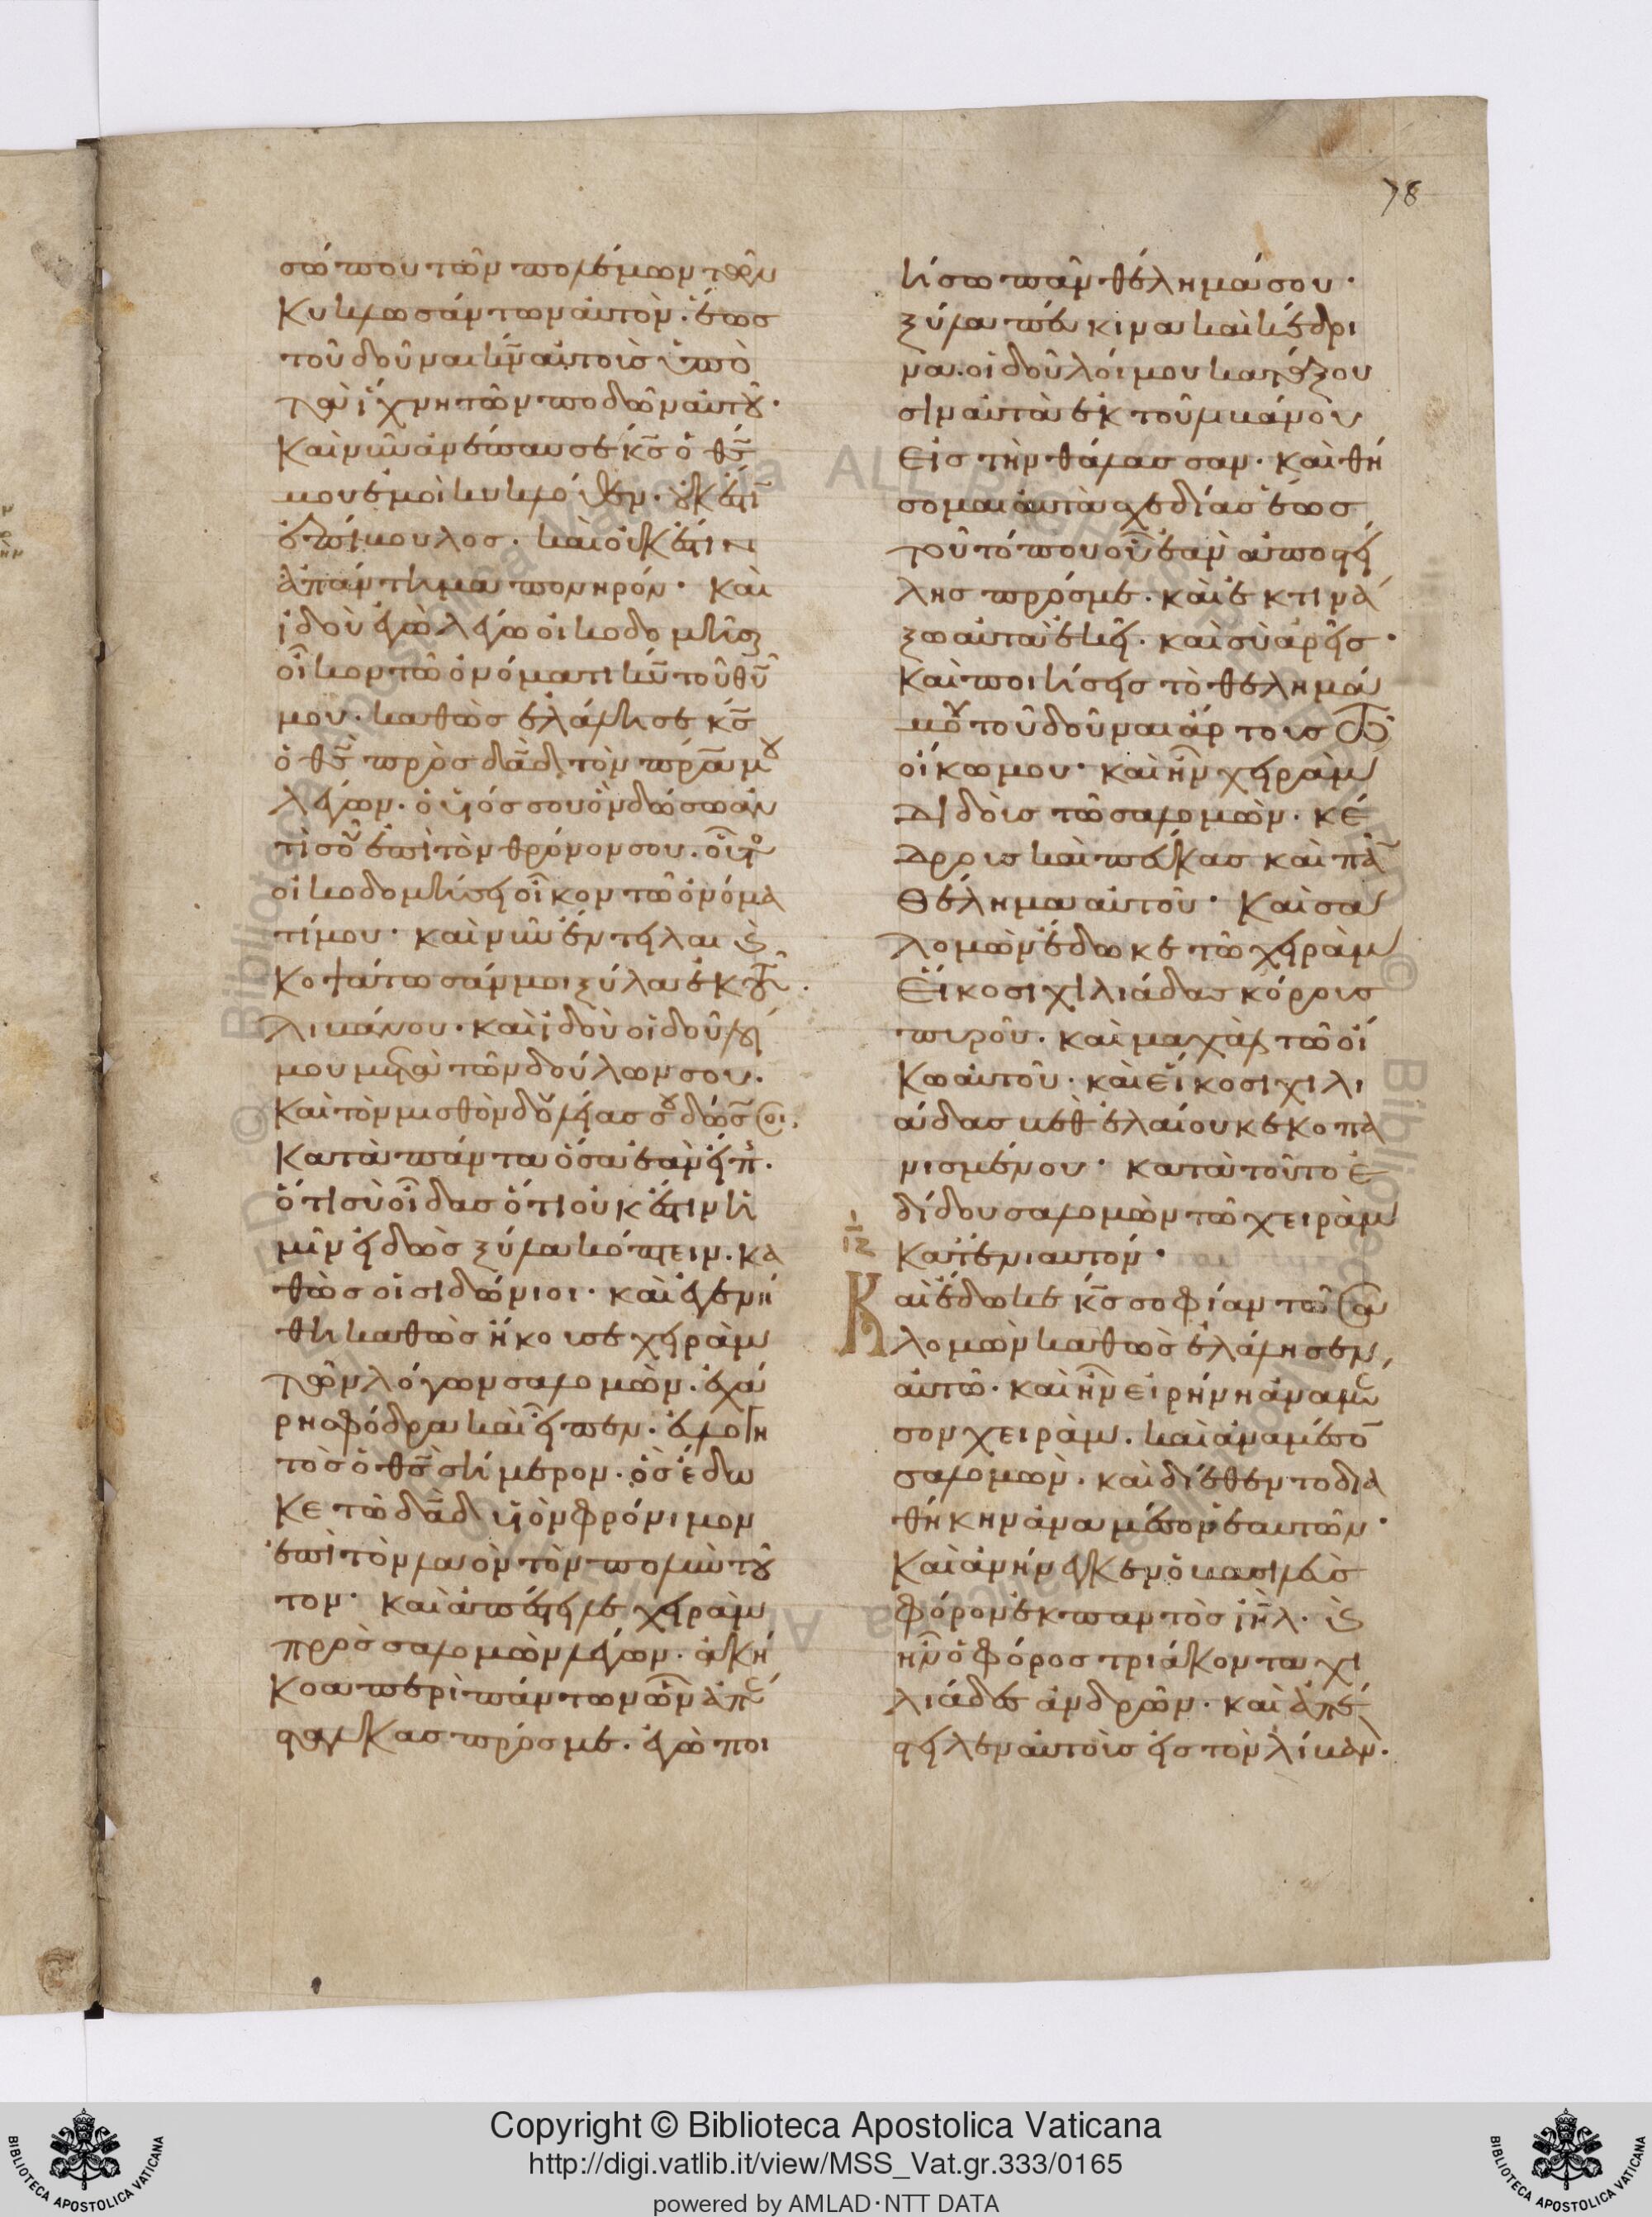 78
σώπου τῶν πολέμων τῶν
κυκλωσάντων αὐτὸν. ἕως
τοῦ δοῦναι κ̅ν̅ αὐτοὺς ὑπὸ
τὰ ἴχνη τῶν ποδῶν αὐτοῦ.
Καὶ νῦν ἀνέπαυσε κ̅ς̅ ὁ θ̅ς̅
μου ἐμοὶ κυκλόθεν. οὐκ ἔστι
ἐπίβουλος. καὶ οὐκ ἔστιν
ἀπάντημα πονηρόν. Καὶ
ἰδοὺ ἐγὼ λέγω οἰκοδομῆσαι
οἶκον τῶ ὀνόματι κ̅υ̅ τοῦ θ̅υ̅
μου. καθὼς ἐλάλησε κ̅ς̅
ὁ θ̅ς̅ πρὸς δ̅α̅δ̅ τὸν π̅ρ̅α̅ μου
λέγων. ὁ υἱός σου ὃν δώσω ἀν
τὶ σοῦ ἐπὶ τὸν θρόνον σου. οὗτος
οἰκοδομήσει οἶκον τῶ ὀνόμα
τί μου. καὶ νῦν ἔντειλαι καὶ
κοψάτωσάν μοι ξύλα ἐκ τοῦ
λιβάνου. καὶ ἰδοὺ οἱ δοῦλοί
μου μετὰ τῶν δούλων σου.
Καὶ τὸν μισθὸν δουλείας σου δώσω σοι.
κατὰ πάντα ὅσα ἐὰν εἴπῃς.
ὅτι σὺ οἶδας ὅτι οὐκ ἔστιν ἡ
μῖν εἰδὼς ξύλα κόπτειν. κα
θὼς οἱ σιδώνιοι. καὶ ἐγενή
θη καθὼς ἤκουσε χειρὰμ
τῶν λόγων σαλομὼν. ἐχά
ρη σφόδρα καὶ εἶπεν. εὐλογη
τὸς ὁ θ̅ς̅ σήμερον. ὃς ἔδω
κε τῶ δ̅α̅δ̅ υἱὸν φρόνιμον
ἐπὶ τὸν λαὸν τὸν πολὺν τοῦ
τον. καὶ ἀπέστειλε χειρὰμ
πρὸς σαλομὼν λέγων. ἀκή
κοα περὶ πάντων ὧν ἀπέ
σταλκας πρός με. ἐγὼ ποι
ήσω πᾶν θέλημά σου.
ξύλα πεύκινα καὶ κέδρι
να. οἱ δοῦλοί μου κατάξου
σιν αὐτὰ ἐκ τοῦ λιβάνου
εἰς τὴν θάλασσαν. καὶ θή
σομαι αὐτὰ σχεδίας ἕως
τοῦ τόπου οὗ ἐὰν ἀποστεί
λης πρός με. καὶ ἐκτινά
ξω αὐτὰ ἐκεῖ. καὶ σὺ ἀρεῖς.
Καὶ ποιήσεις τὸ θέλημά
μου τοῦ δοῦναι ἄρτους τῶ
οἴκω μου. καὶ ἦν χειρὰμ
διδοὺς τῶ σαλομὼν. κέ
δρους καὶ πεύκας καὶ πᾶν
θέλημα αὐτοῦ. Καὶ σα
λομὼν ἔδωκε τῶ χειρὰμ
εἴκοσι χιλιάδας κόρους
πυροῦ. καὶ μαχὰλ τῶ οἴ
κω αὐτοῦ. καὶ εἴκοσι χιλι
άδας βεθ ἐλαίου κεκοπα
νισμένου. κατὰ τοῦτο ἐ
δίδου σαλομὼν τῶ χειρὰμ
κατ ἐνιαυτόν.
Καὶ ἔδωκε κ̅ς̅ σοφίαν τῶ σα
λομὼν καθὼς ἐλάλησεν
αὐτῶ. καὶ ἦν εἰρήνη ἀναμέ
σον χειρὰμ. καὶ ἀναμέσον
σαλομὼν. καὶ διέθεντο δια
θήκην ἀναμέσον ἑαυτῶν.
Καὶ ἀνήνεγκεν ὁ βασιλεὺς
φόρον ἐκ παντὸς ι̅η̅λ̅. καὶ
ἦν ὁ φόρος τριάκοντα χι
λιάδες ἀνδρῶν. καὶ ἀπέ
στειλεν αὐτοὺς εἰς τὸν λίβαν.
Copyright © Biblioteca Apostolica Vaticana
http://digi.vatlib.it/view/MSS_Vat.gr.333/0165
powered by AMLAD·NTT DATA